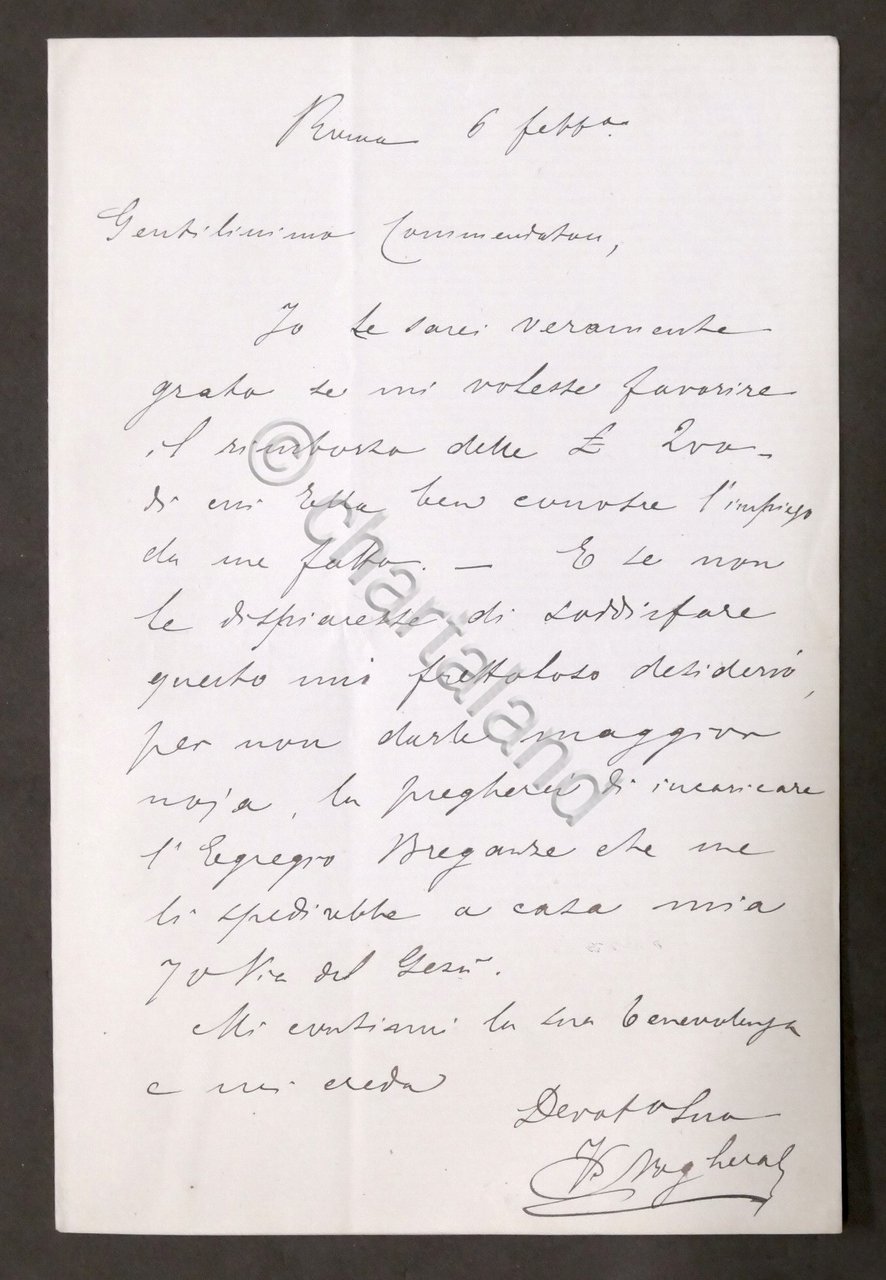 Roma 6 febbo.
Gentilissimo Commendatore,
Io Le sarei veramente
grato se mi volesse favorire
il rimborso delle £ 200 -
di cui Ella ben conosce l'impiego
da me fatto. — E se non
le dispiacesse di soddisfare
questo mio frettoloso desiderio,
per non darle maggior
noja, la pregherei di incaricare
l'Egregio Breganze che me
li spedirebbe a casa mia
70 Via del Gesù.
Mi continui la sua benevolenza
e mi creda
Devoto Suo
© Chartaland